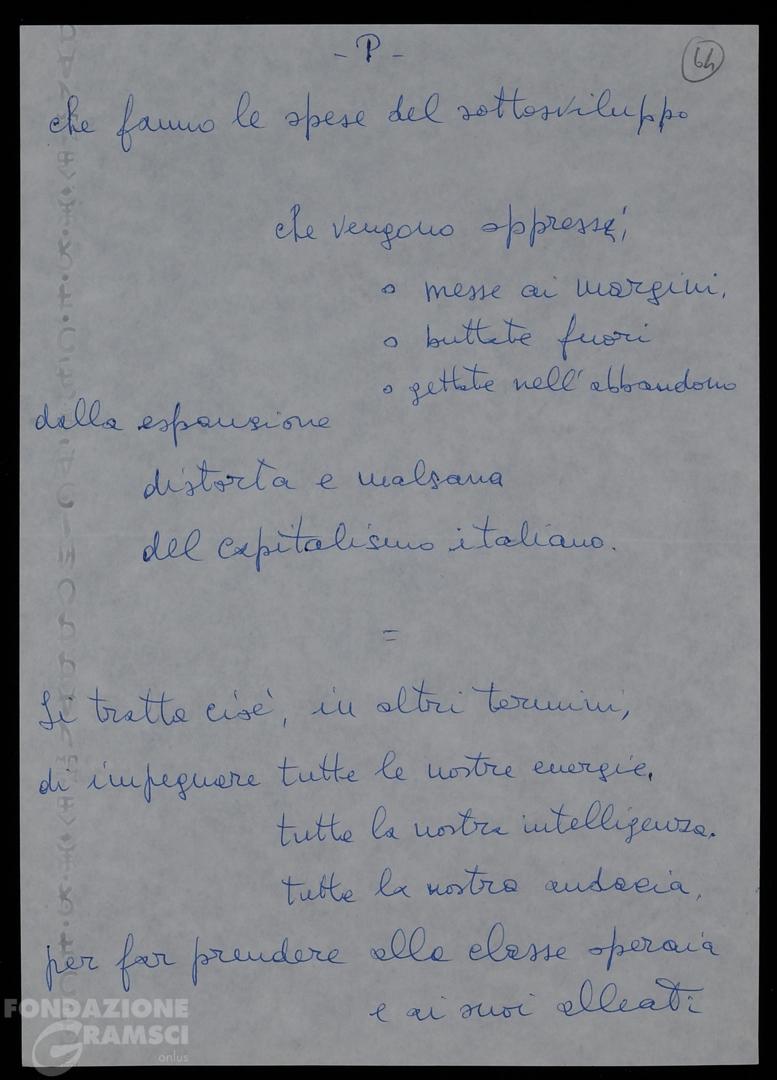 - P -
64
che fanno le spese del sottosviluppo
che vengono oppresse,
o messe ai margini,
o buttate fuori
o gettate nell'abbandono
dalla espansione
distorta e malsana
del capitalismo italiano.
=
Si tratta cioè, in altri termini,
di impegnare tutte le nostre energie,
tutta la nostra intelligenza,
tutta la nostra audacia,
per far prendere alla classe operaia
e ai suoi alleati
FONDAZIONE
GRAMSCI
onlus